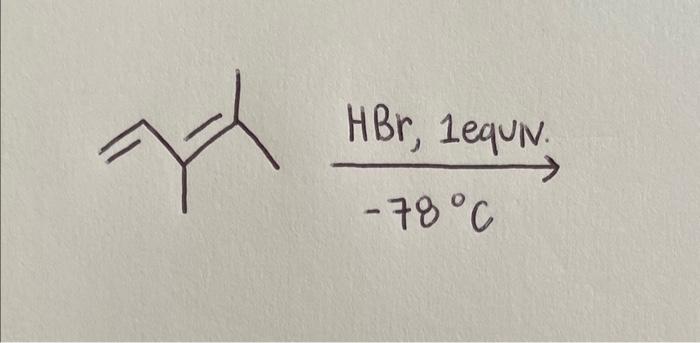 HBr, 1equiv.
-78°C